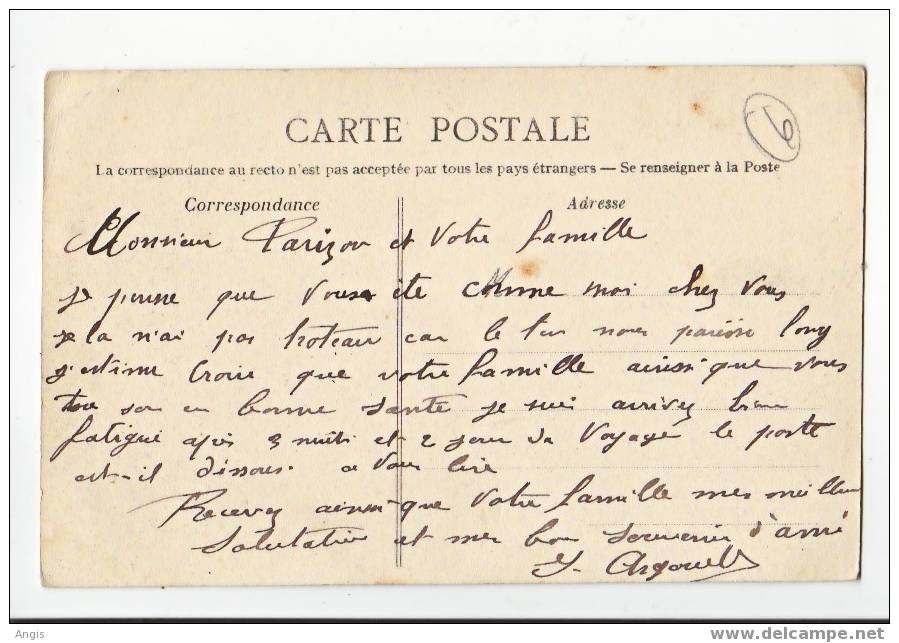 CARTE POSTALE
La correspondance au recto n'est pas acceptée par tous les pays étrangers — Se renseigner à la Poste
Correspondance Adresse
Monsieur Parizon et Votre famille
je pense que vous ete comme moi chez vous
n'ai pas car le nous long
j'estime Croire que votre famille ainssi que vous
son en bonne Santé je sui arrivez bien
fatigué apès 3 nuits et 2 jour de Voyage le poste
est-il dissous. a vous lire
Recevez ainssi que votre famille mes meilleur
Salutation et mes bon souvenir d'ami
Angis
www.delcampe.net